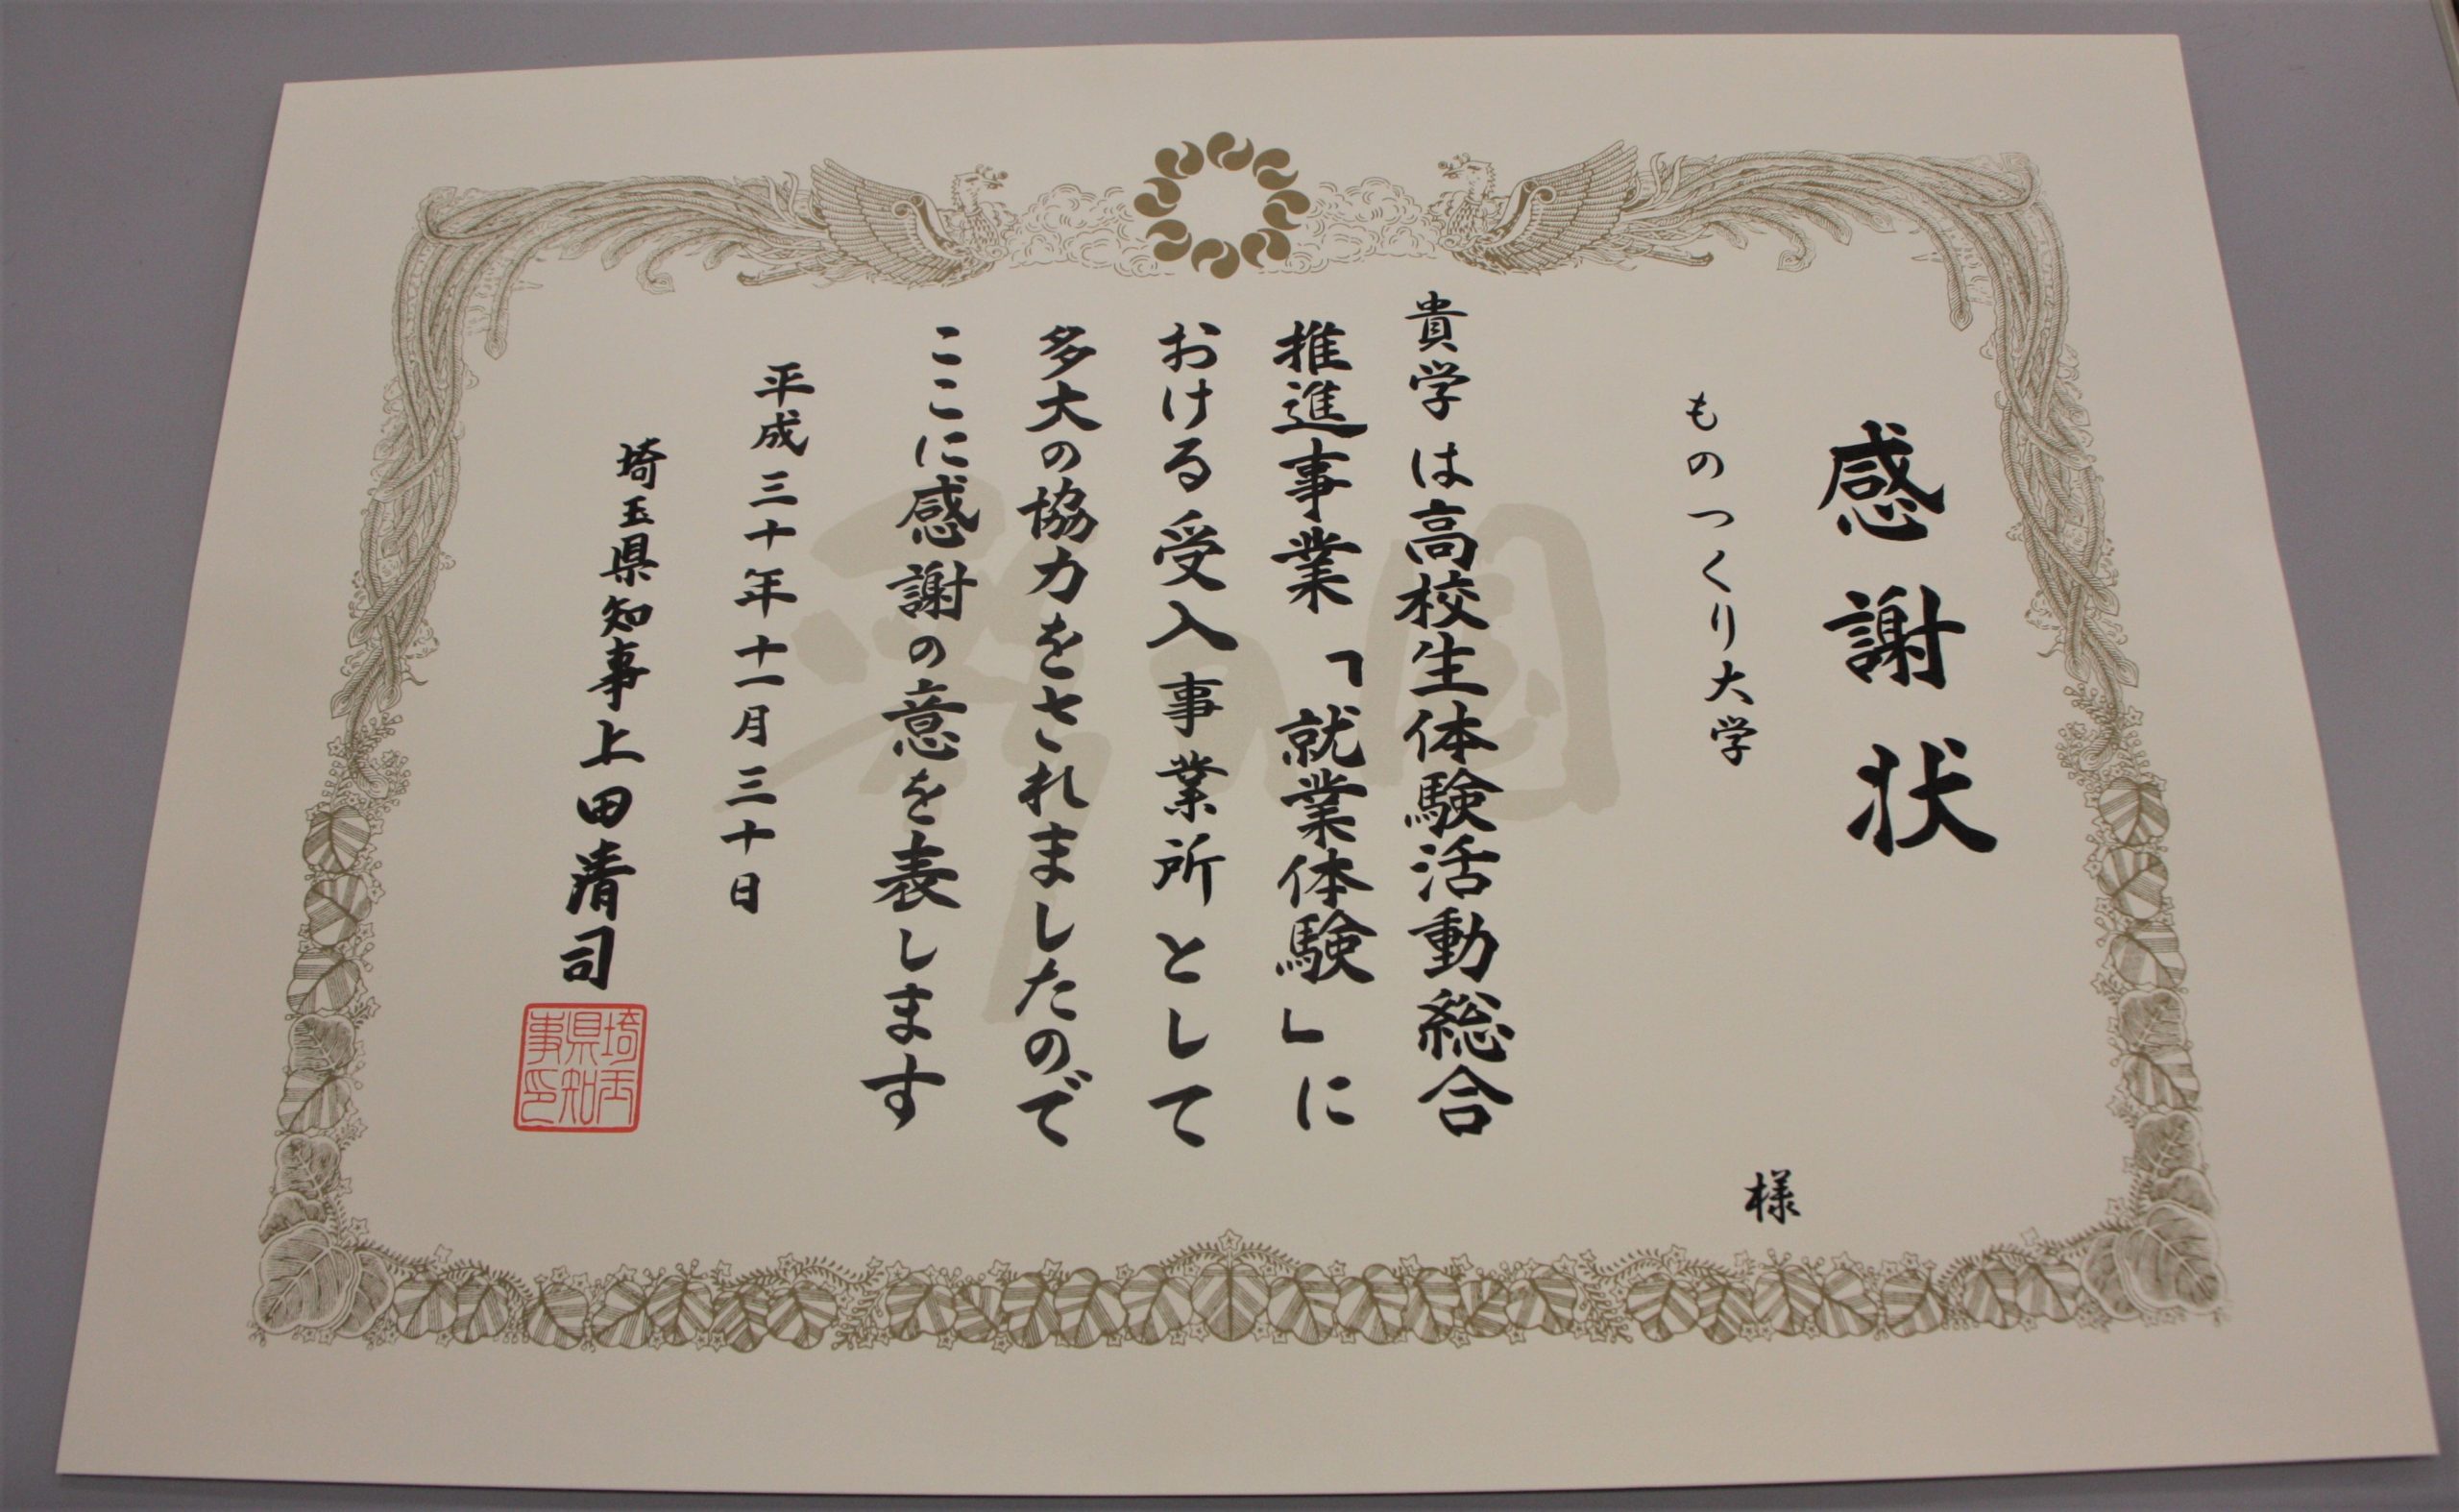 感謝状
ものつくり大学
様
貴学は高校生体験活動総合
推進事業「就業体験」に
おける受入事業所として
多大の協力をされましたので
ここに感謝の意を表します
平成三十年十一月三十日
埼玉県知事上田清司
埼玉県知事印
彩の国